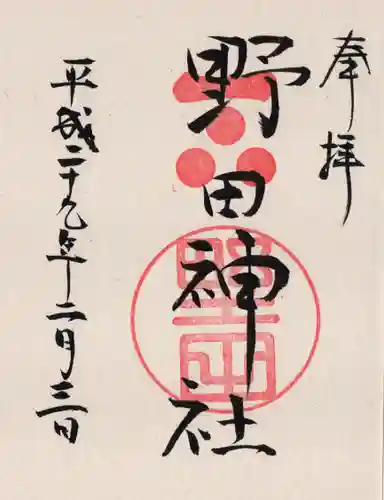 奉拝
野田神社
平成二十九年二月三日
野田